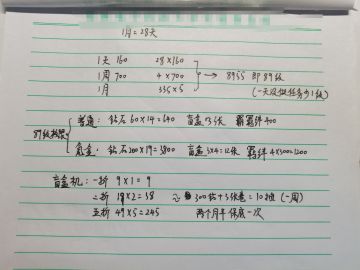 1月=28天
1天 160 28×160
1周 700 4×700 → 8955 即89级
1月 335×5 (一天没做任务少1级)
89级档案
普通: 钻石 60×14=640 盲盒 3张 羁绊 400
氪金: 钻石 200×19=3800 盲盒 3×4=12张 羁绊 4×300=1200
盲盒机: 一折 9×1=9
二折 18×2=38 300钻+3张卷=10抽 (一周)
五折 49×5=245 两个月半保底一次